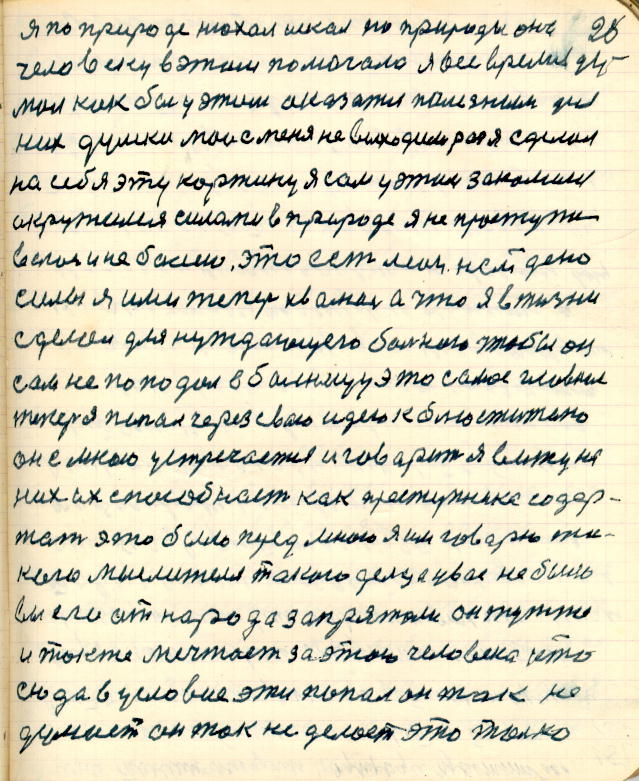 я по природе нюхал искал по природы она 28
человеку в этом помогала я все время ду-
мал как бы у этом оказати полезным для
них думка моя с меня не выходила раз я сделал
на себя эту коржину я сам у этим закалился
окружился силами в природе я не проступник
это есть мои дело
силы я ими тепер хвалюсь а что я в жизни
сделал для нуждающего больного чтобы он
сам не попадал в больницу это самое главное
тепер я попал через свою идею к
он с мною устречается и говорит я вижу на
них их способнаст как преступника содер-
жат это было пред мною я им говарю та-
кого мыслителя такого делца у вас не было
вы его от народа запрятали он тут же
и также мечтает за этого человека кто
сюда в условие эти попал он так не
думает он так не делает это толко